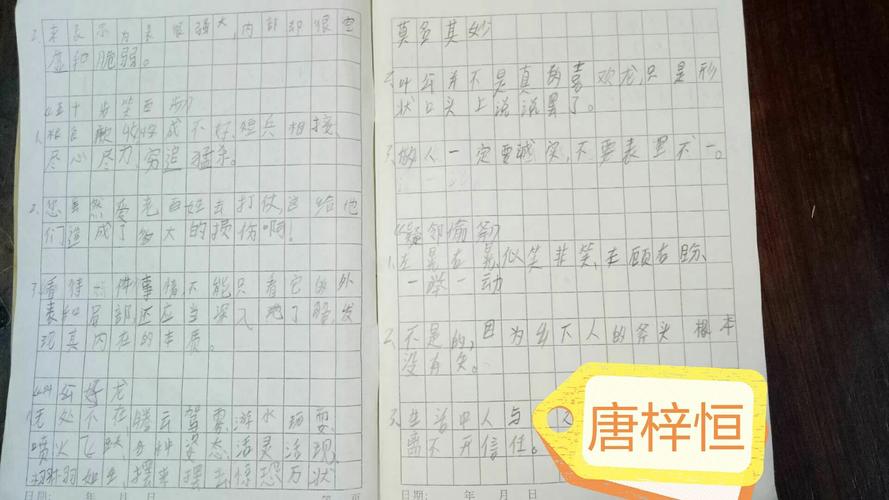 2、来表示为表很强大,内部却很空
虚和脆弱。
《五十步笑百步》
1、粮食歉收收成不好,短兵相接、
尽心尽力、穷追猛杀。
2、您虽然爱老百姓去打仗,这给他
们造成了多大的损伤啊!
3、看待一件事情,不能只看它的外
表和局部,还应当深入地了解,发
现其内在的本质。
《叶公好龙》
无处不在,腾云驾雾,游水玩耍、
喷火飞跃、各种姿态、活灵活现、
栩栩如生、摆来摆去、惊恐万状
日期: 年 月 日 页
莫名其妙
2、叶公并不是真的喜欢龙,只是形
状口头上说说罢了。
3、做人一定要诚实,不要表里不一。
《疑邻偷斧》
1、左晃右晃、似笑非笑、左顾右盼、
一举一动
2、不是的,因为乡下人的斧头根本
没有丢。
3、生活中人与人
离不开信任。
日期: 年 月 日
唐梓恒